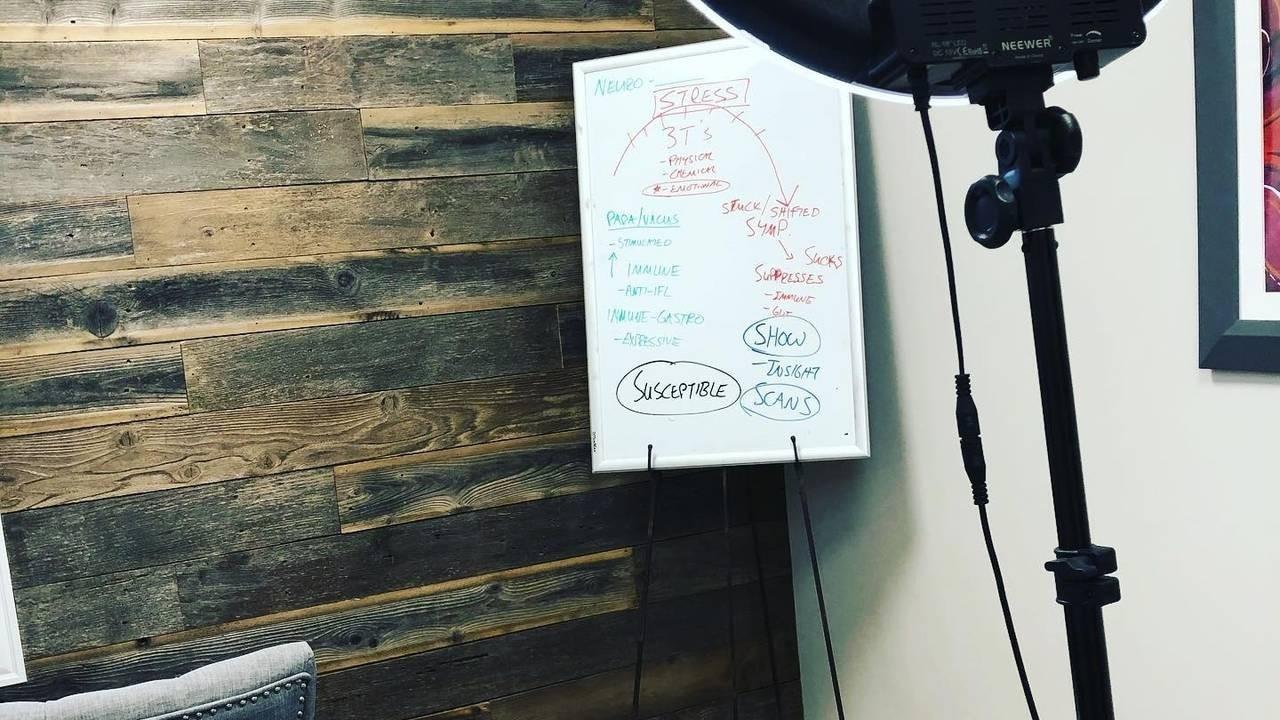 NEURO -
STRESS
3T's
- PHYSICAL
- CHEMICAL
*- EMOTIONAL
PARA/VAGUS
- STIMULATED
↑ IMMUNE
- ANTI-IFL
IMMUNE-GASTRO
- EXPRESSIVE
SUSCEPTIBLE
STUCK/SHIFTED
SYMP.
SUCKS
SUPPRESSES
- IMMUNE
- GUT
SHOW
- INSIGHT
SCANS
NEEWER